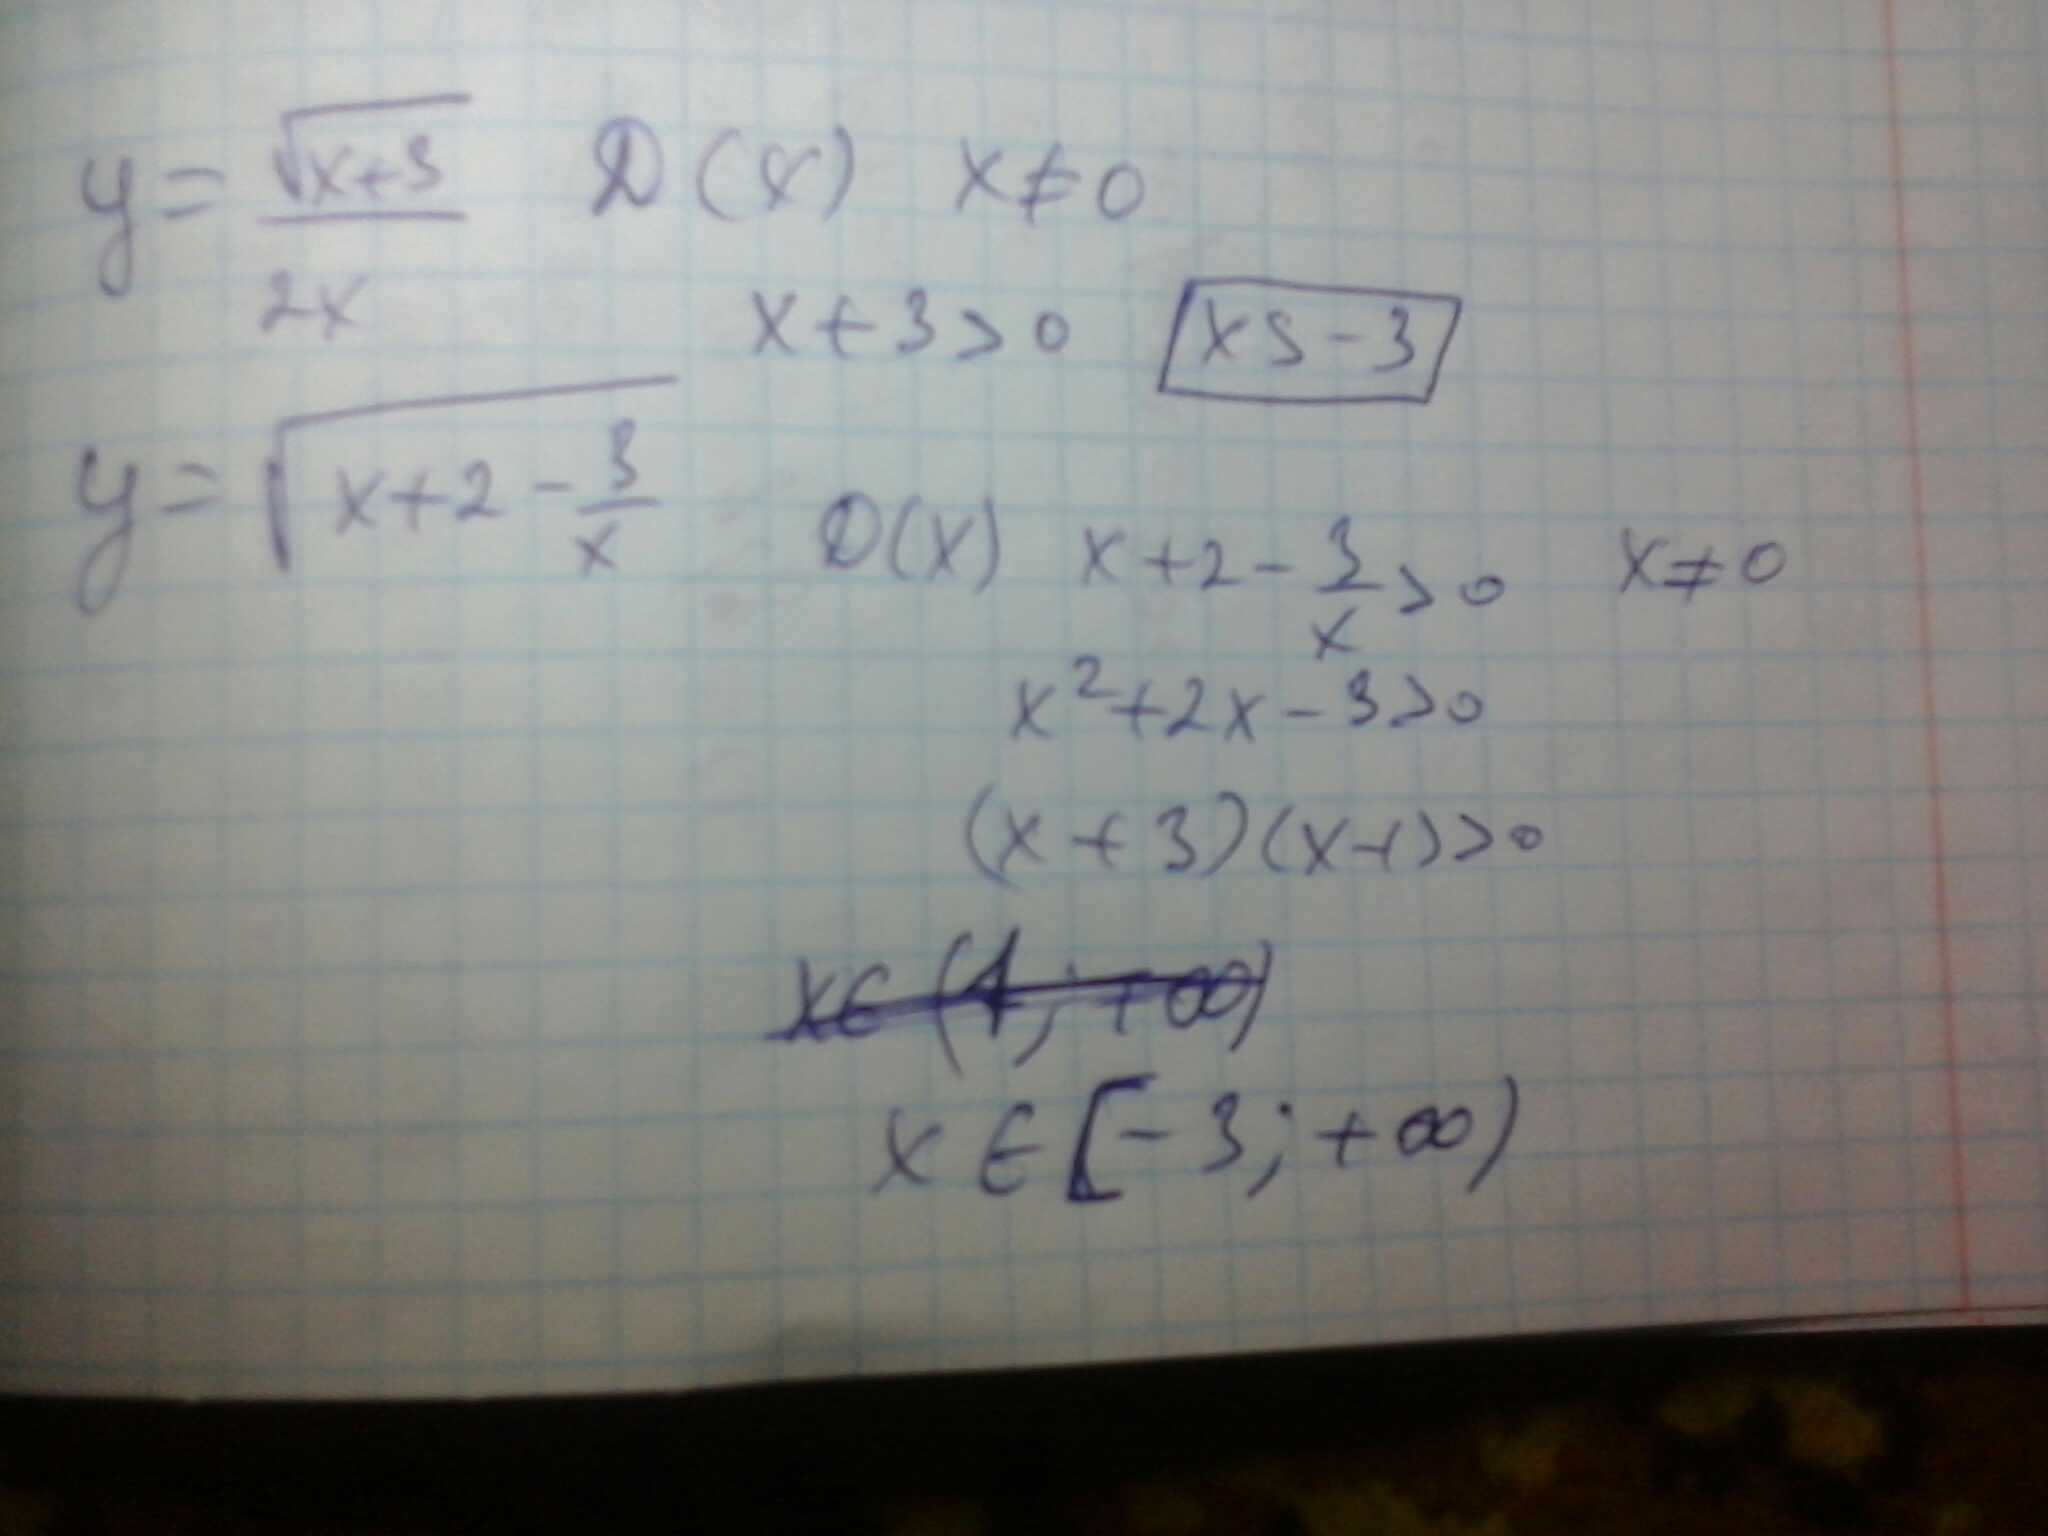 y = √(x+3) / 2x D(x) x≠0
x+3>0 x>-3
y = √(x+2-3/x) D(x) x+2-3/x>0 x≠0
x²+2x-3>0
(x+3)(x-1)>0
x∈(1;+∞)
x∈[-3;+∞)